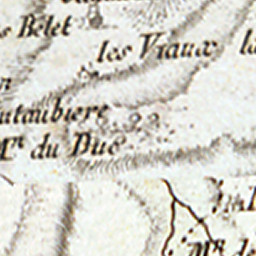 Belet
les Viaux
la
utaubiere
Mn du Duc
MR de